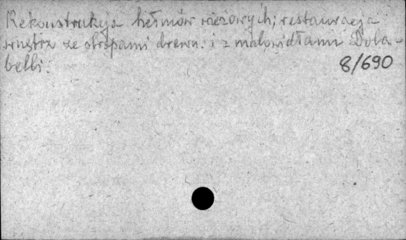 Rekonstrukcja hełmów wieżowych; restauracja
wnętrz ze stropami drewn. i z malowidłami Dola-
belli.
8/690